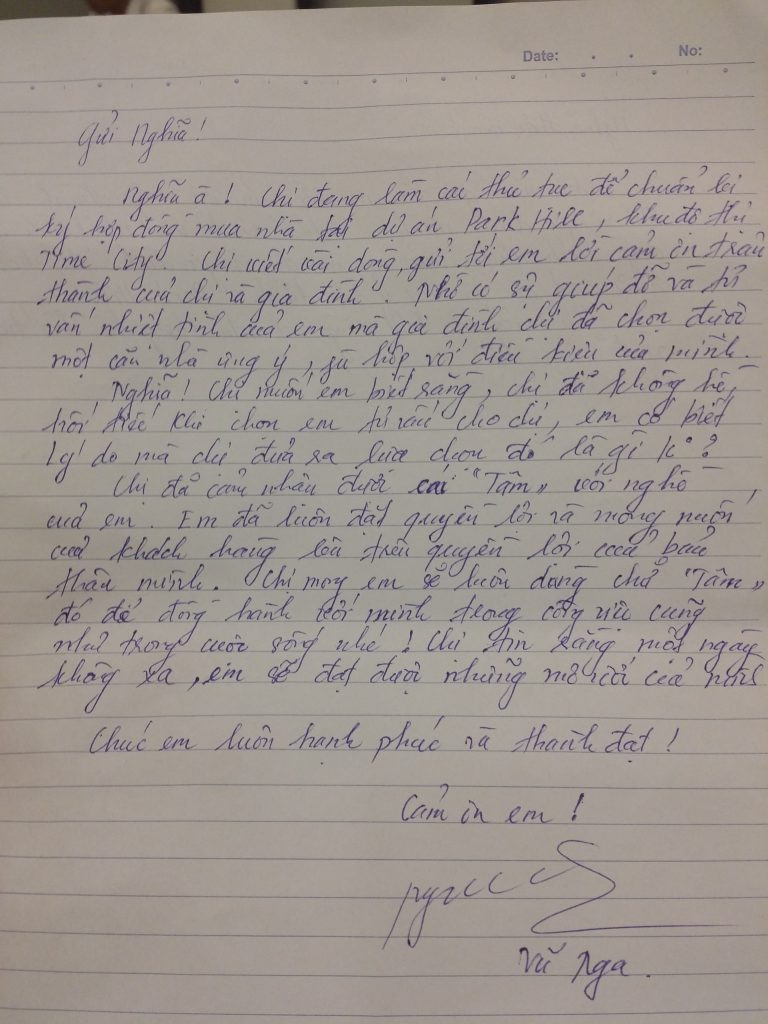 Date: No:
Gửi Nghĩa!
Nghĩa à! Chị đang làm các thủ tục để chuẩn bị
ký hợp đồng mua nhà tại dự án Park Hill, khu đô thị
Time City. Chị viết vài dòng, gửi tới em lời cảm ơn trân
thành của chị và gia đình. Nhờ có sự giúp đỡ và tư
vấn nhiệt tình của em mà gia đình chị đã chọn được
một căn nhà ưng ý, phù hợp với điều kiện của mình.
Nghĩa! Chị muốn em biết rằng, chị đã không hề,
hối tiếc khi chọn em tư vấn cho chị, em có biết
lý do mà chị đưa ra lựa chọn đó là gì k°?
Chị đã cảm nhận được cái "Tâm" với nghề
của em. Em đã luôn đặt quyền lợi và mong muốn
của khách hàng lên trên quyền lợi của bản
thân mình. Chị mong em sẽ luôn dùng chữ "Tâm"
đó để đồng hành với mình trong công việc cũng
như trong cuộc sống nhé! Chị tin rằng một ngày
không xa, em sẽ đạt được những mơ ước của mình
Chúc em luôn hạnh phúc và thành đạt!
Cảm ơn em!
Vũ Nga.